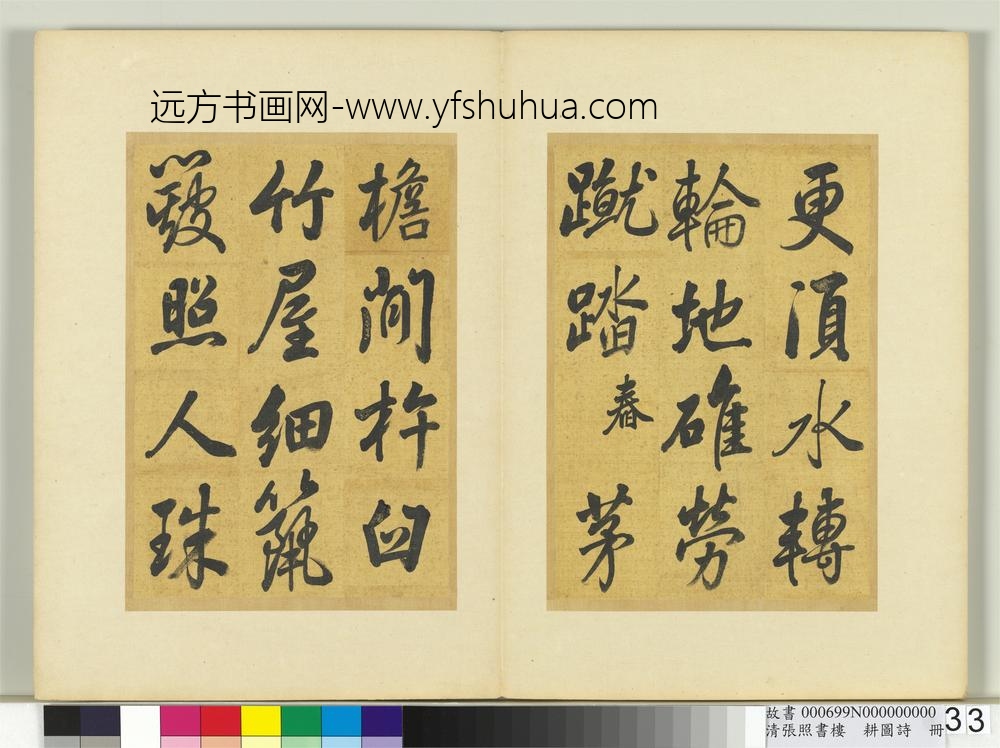 远方书画网-www.yfshuhua.com
更須水轉
輪地碓勞
蹴踏舂茅
檐閒杵臼
竹屋細籭
簸照人珠
故書 000699N000000000
清張照書樓 耕圖詩 冊
33